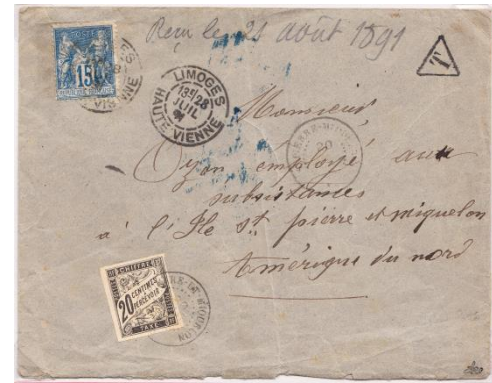 Reçu le 21 août 1891
T
POSTE
15
REPUBLIQUE FRANCAISE
LIMOGES
28
JUIL
91
HAUTE VIENNE
Monsieur
Oyon employé aux
subsistances
à l'Ile St. pierre et miquelon
Amérique du nord
20
CHIFFRE
20 CENTIMES
A PERCEVOIR
TAXE